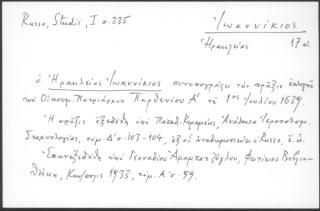 Russo, Studii, I σ.235
Ἰωαννίκιος
Ἡρακλείας 17 αἰ.
ὁ Ἡρακλείας Ἰωαννίκιος συνυπογράφει τὴν πρᾶξιν ἐκλογῆς
τοῦ Οἰκουμ. Πατριάρχου Παρθενίου Α' τῇ 1ης Ἰουλίου 1639.
Ἡ πρᾶξις ἐξεδόθη ὑπὸ Παπαδ. Κεραμέως, Ἀνάλεκτα Ἱεροσολυμ.
Σταχυολογίας, τόμ. Δ' σ. 103-104, ἐξ οὗ ἀναδημοσιεύει ὁ Russo, ἔ.ἀ.
Ἐπανεξεδόθη ὑπὸ Γενναδίου Ἀραμπατζόγλου, Φωτίειος Βιβλιο-
θήκη, Κων/πολις 1933, τόμ. Α' σ. 99.